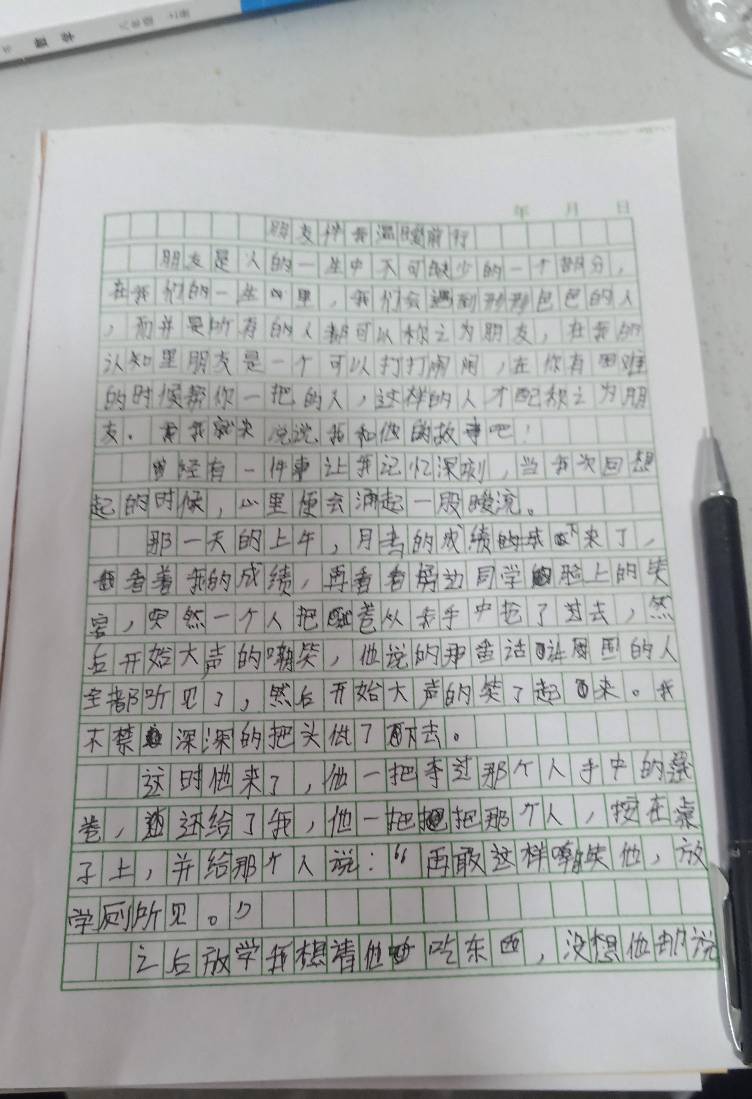 八年级 上册
年 月 日
朋友伴我温暖前行
朋友是人的一生中不可缺少的一个部分，
在我们的一生里，我们会遇到形形色色的人
，而并是所有的人都可以称之为朋友，在我的
认知里朋友是一个可以打打闹闹，在你有困难
的时候帮你一把的人，这样的人才配称之为朋
友。我就来说说我和他的故事吧！
曾经有一件事让我记忆深刻，当我次回想
起的时候，心里便会涌起一股暖流。
那一天的上午，月考的成绩下来了，
我看着我的成绩，再看看旁边同学脸上的笑
容，突然一个人把卷从我手中抢了过去，然
后开始大声的嘲笑，他说的那番话让周围的人
全都听见了，然后开始大声的笑了起来。我
不禁深深的把头低了下去。
这时他来了，他一把夺过那个人手中的
卷，还给了我，他一把把那个人，按在桌
子上，并给那个人说：“再敢这样嘲笑他，放
学厕所见。”
之后放学我想请他吃东西，没想他却说